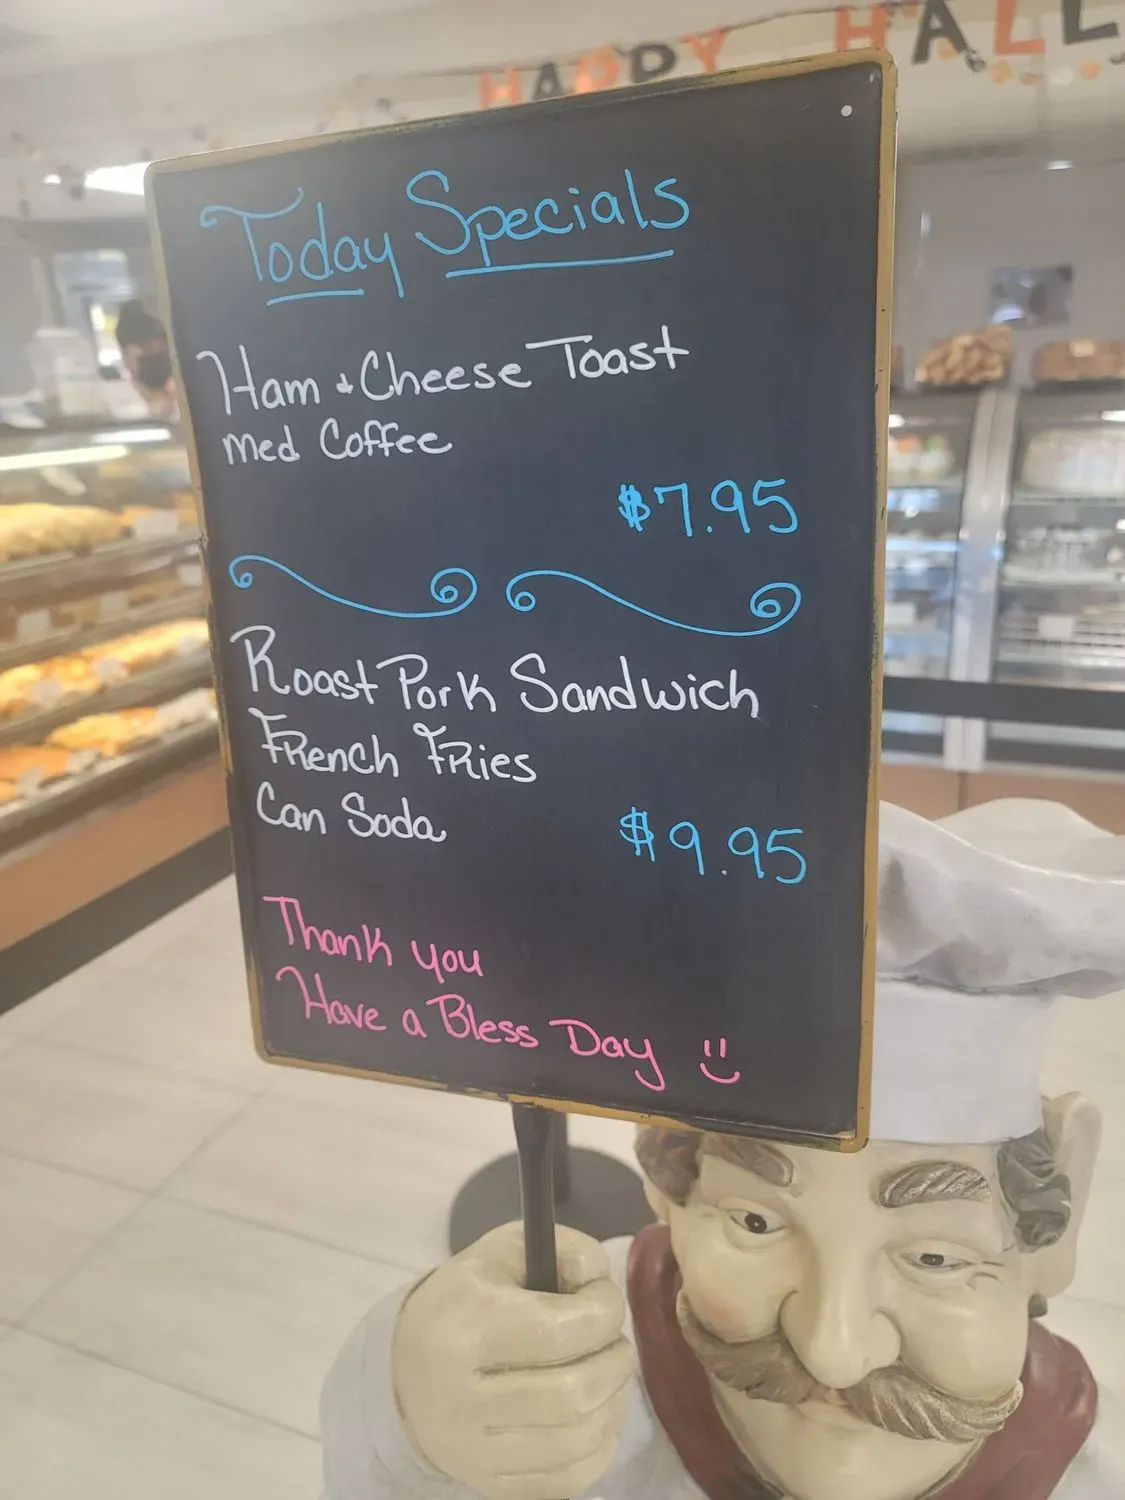 HAPPY HALL
Today Specials
Ham & Cheese Toast
med Coffee
$7.95
Roast Pork Sandwich
French Fries
Can Soda
$9.95
Thank you
Have a Bless Day